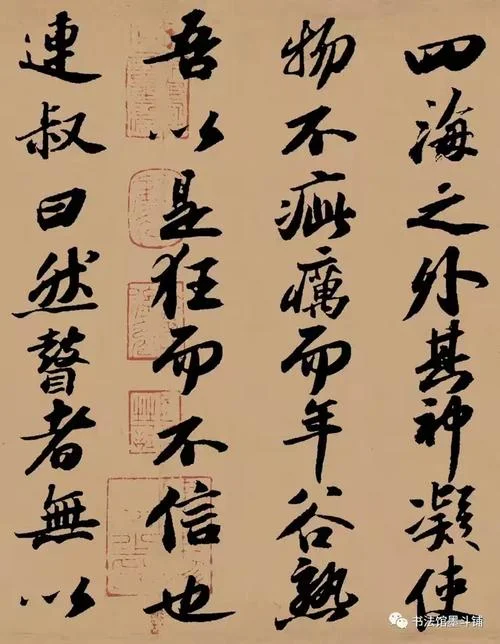 四海之外其神凝使
物不疵癘而年谷熟
吾以是狂而不信也
連叔曰然瞽者無以
书法馆墨斗铺